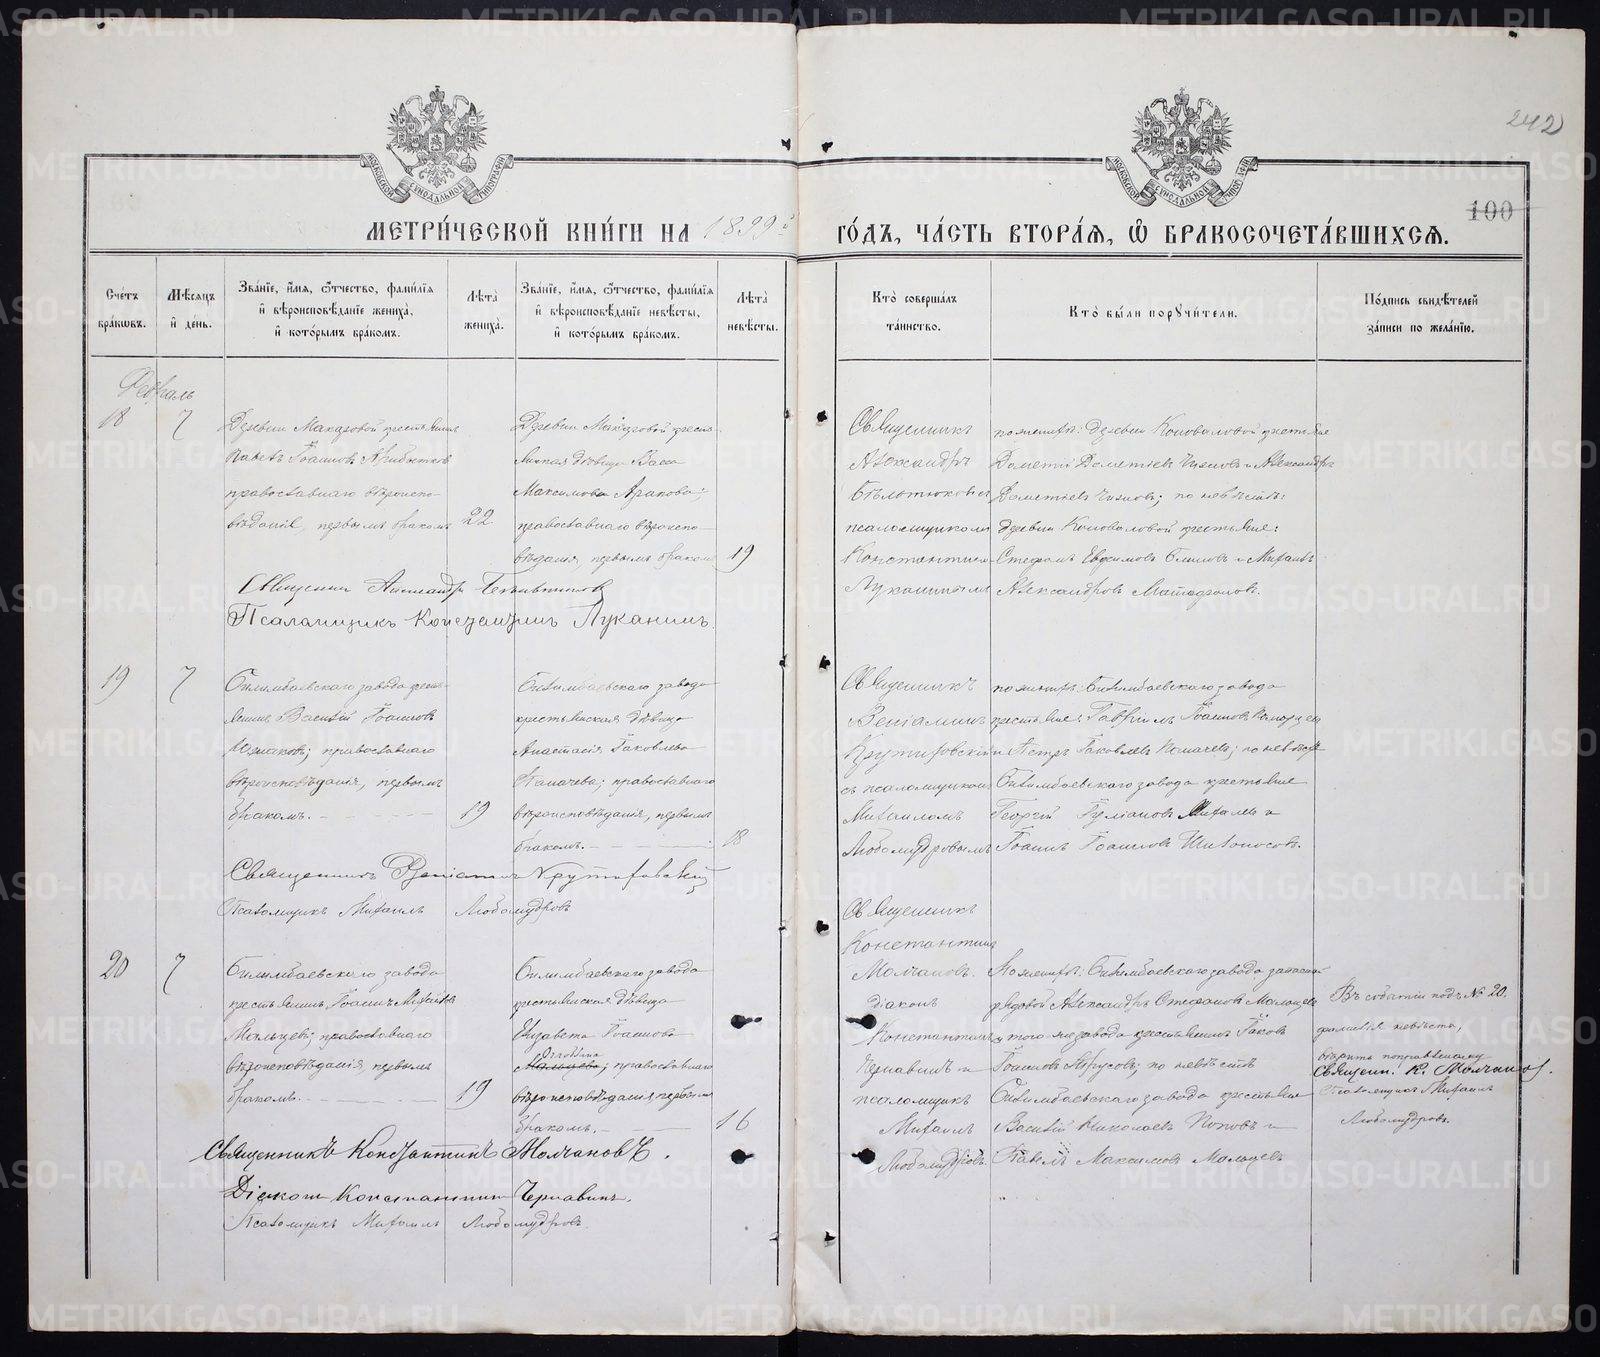 242
100
МЕТРИ́ЧЕСКОЙ КНИ́ГИ НА 1899й ГО́ДЪ, ЧА́СТЬ ВТОРА́Я, Ѡ БРАКОСОЧЕТА́ВШИХСЯ.
Сче́тъ бра́ковъ.
Мѣ́сяцъ и де́нь.
Зва́нїе, и́мя, ѻ́тчество, фами́лїя
и вѣроисповѣ́данїе жениха́,
и кото́рымъ бра́комъ.
Лѣта̀ жениха̀.
Зва́нїе, и́мя, ѻ́тчество, фами́лїя
и вѣроисповѣ́данїе невѣ́сты,
и кото́рымъ бра́комъ.
Лѣта̀ невѣ́сты.
Кто̀ соверша́лъ та́инство.
Кто̀ бы́ли пору́чители.
По́дпись свидѣ́телей за́писи по жела́нїю.
Февраль
18
7
Деревни Макаровой крестьянинъ
Павелъ Іоанновъ
православнаго вѣроиспо-
вѣданія, первымъ бракомъ
22
Деревни Макаровой кресть-
янская дѣвица Васса
Максимова
православнаго вѣроиспо-
вѣданія, первымъ бракомъ
19
Священникъ
Александръ
псаломщикомъ
Константином
Луканинымъ
по женихѣ: Деревни Коноваловой крестьяне
Дометій Дометіевъ и Александръ
Дометіевъ по невѣстѣ:
деревни Коноваловой крестьяне:
Стефанъ Евфимовъ и Михаилъ
Александровъ
Священник Александръ
Псаломщикъ Константинъ Луканинъ.
19
7
Билимбаевскаго завода кресть-
янинъ Василій Іоанновъ
православнаго
вѣроисповѣданія, первымъ
бракомъ.
19
Билимбаевскаго завода
крестьянская дѣвица
Анастасія Іаковлева
православнаго
вѣроисповѣданія, первымъ
бракомъ.
18
Священникъ
Веніаминъ
Крутиховскій
съ псаломщикомъ
Михаиломъ
Любомудровымъ
по женихѣ: Билимбаевскаго завода
крестьяне: Гавріилъ Іоанновъ
и Петръ Іаковлевъ по невѣстѣ
Билимбаевскаго завода крестьяне
Георгій Іуліановъ и
Іоаннъ Іоанновъ Шилоносовъ.
Священникъ Веніаминъ Крутиховскій
Псаломщикъ Михаилъ Любомудровъ
20
7
Билимбаевскаго завода
крестьянинъ, Іоаннъ
Мальцевъ; православнаго
вѣроисповѣданія, первымъ
бракомъ.
19
Билимбаевскаго завода
крестьянская дѣвица
Елизавета Іоаннова
Мальцева; православнаго
вѣроисповѣданія, первымъ
бракомъ.
16
Священникъ
Константинъ
Молчановъ.
Діаконъ
Константинъ
Чернавинъ и
псаломщикъ
Михаилъ
Любомудровъ.
По женихѣ: Билимбаевскаго завода запасной
рядовой Александръ Стефановъ Мальцевъ
и того же завода крестьянинъ Іаковъ
Іоанновъ по невѣстѣ
Билимбаевскаго завода крестьяне
Василій Николаевъ Поповъ и
Павелъ Максимовъ Мальцевъ
Въ событіи подъ № 20.
фамилія невѣсты,
вѣрить поправленному
Священ. К. Молчановъ.
Псаломщикъ Михаилъ
Любомудровъ.
Священникъ Константинъ Молчановъ.
Діаконъ Константинъ Чернавинъ.
Псаломщикъ Михаилъ Любомудровъ.
METRIKI.GASO-URAL.RU